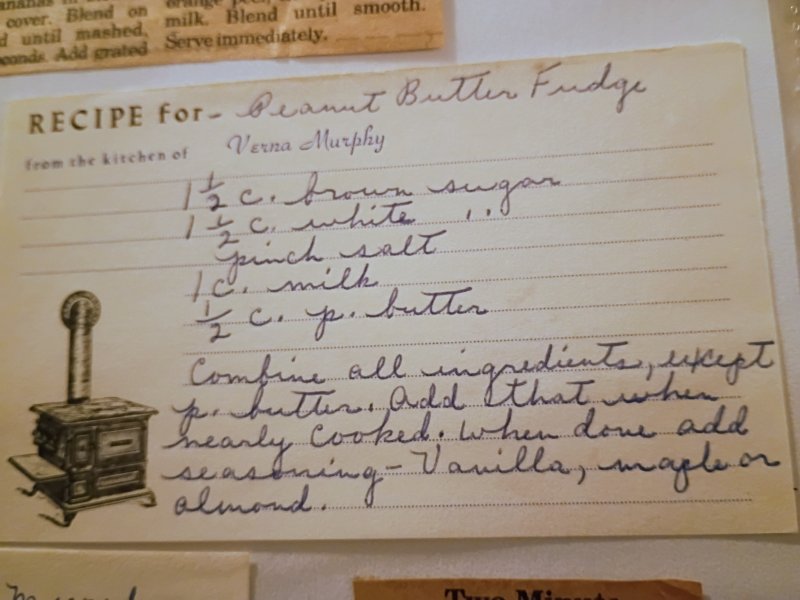 cover. Blend on
until mashed,
Add grated
milk. Blend until smooth.
Serve immediately.
RECIPE for- Peanut Butter Fudge
from the kitchen of Verna Murphy
1 1/2 c. brown sugar
1 1/2 c. white ,,
pinch salt
1 c. milk
1/2 c. p. butter
Combine all ingredients, except
p. butter. Add that when
nearly cooked. When done add
seasoning - Vanilla, maple or
almond.
Two Minute